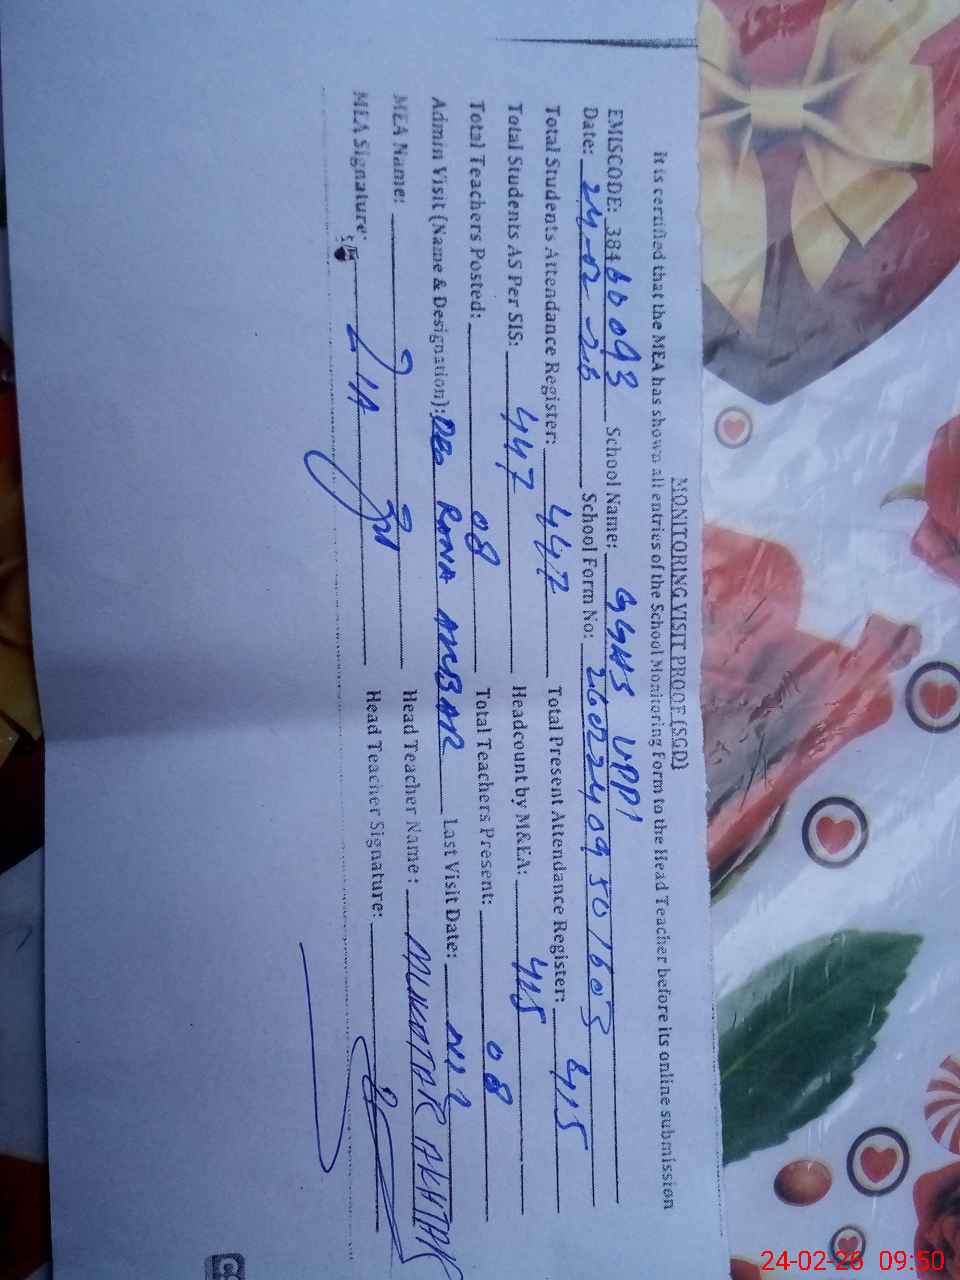 MONITORING VISIT PROOF (SGD)
It is certified that the MEA has shown all entries of the School Monitoring Form to the Head Teacher before its online submission
EMISCODE: 38460093 School Name: GGHS UPPI
Date: 24-02-26 School Form No: 26022409501603
Total Students Attendance Register: 447 Total Present Attendance Register: 415
Total Students AS Per SIS: 447 Headcount by M&EA: 415
Total Teachers Posted: 08 Total Teachers Present: 08
Admin Visit (Name & Designation): RANA AMBAR Last Visit Date: Nil
MEA Name: Head Teacher Name: MUKHTAR AKHTAR
MEA Signature: Head Teacher Signature:
24-02-26 09:50